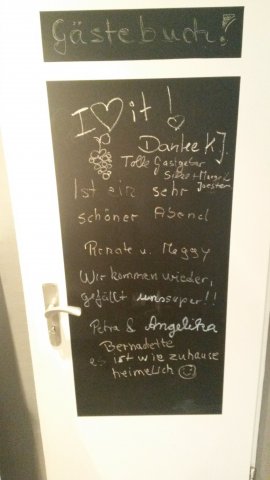 Gästebuch!
I ♡ it!
Danke KJ.
Tolle Gastgeber
Ist ein sehr
schöner Abend
Renate u. Meggy
Wir kommen wieder,
gefällt uns super!!
Petra & Angelika
Bernadette
es ist wie zuhause
heimelich ☺